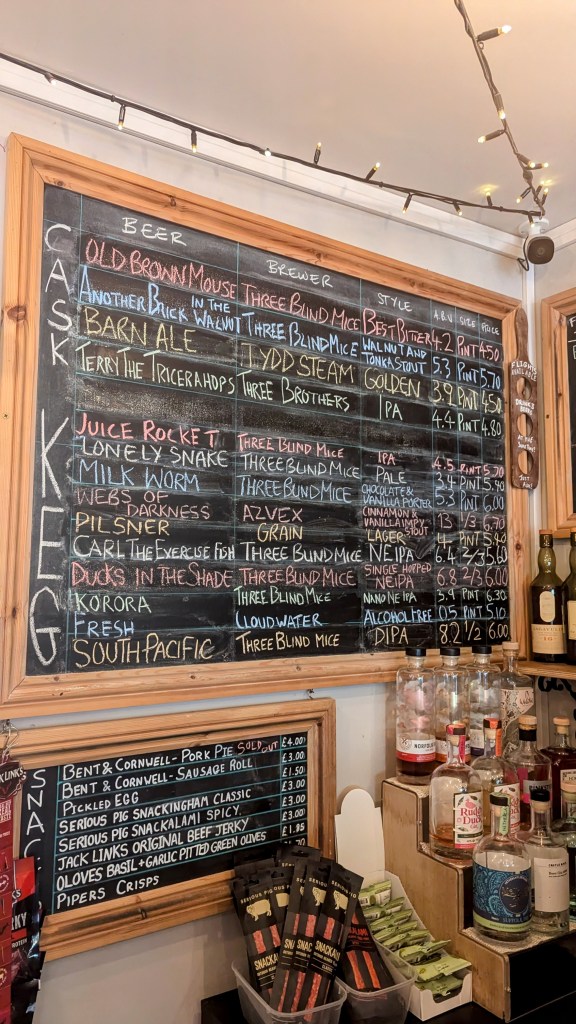 CASK
KEG
BEER BREWER STYLE ABV SIZE PRICE
OLD BROWN MOUSE THREE BLIND MICE BEST BITTER 4.2 PINT 4.50
ANOTHER BRICK IN THE WALNUT THREE BLIND MICE WALNUT AND TONKA STOUT 5.3 PINT 5.70
BARN ALE TYDD STEAM GOLDEN 3.9 PINT 4.50
TERRY THE TRICERAHOPS THREE BROTHERS IPA 4.4 PINT 4.80
JUICE ROCKET THREE BLIND MICE IPA 4.5 PINT 5.70
LONELY SNAKE THREE BLIND MICE PALE 3.4 PINT 5.40
MILK WORM THREE BLIND MICE CHOCOLATE & VANILLA PORTER 5.3 PINT 6.00
WEBS OF DARKNESS AZVEX CINNAMON & VANILLA IMPY STOUT 13 1/3 6.70
PILSNER GRAIN LAGER 4 PINT 5.40
CARL THE EXERCISE FISH THREE BLIND MICE NEIPA 6.4 2/3 5.60
DUCKS IN THE SHADE THREE BLIND MICE SINGLE HOPPED NEIPA 6.8 2/3 6.00
KORORA THREE BLIND MICE NANO NEIPA 5.9 PINT 6.30
FRESH CLOUDWATER ALCOHOL FREE 0.5 PINT 5.10
SOUTH PACIFIC THREE BLIND MICE DIPA 8.2 1/2 6.00
FLIGHTS AVAILABLE
SNAC
BENT & CORNWELL - PORK PIE SOLD OUT £4.00
BENT & CORNWELL - SAUSAGE ROLL £3.00
PICKLED EGG £1.50
SERIOUS PIG SNACKINGHAM CLASSIC £3.00
SERIOUS PIG SNACKALAMI SPICY £3.00
JACK LINKS ORIGINAL BEEF JERKY £3.00
OLOVES BASIL + GARLIC PITTED GREEN OLIVES £1.95
PIPERS CRISPS
SERIOUS PIG
SNACKA